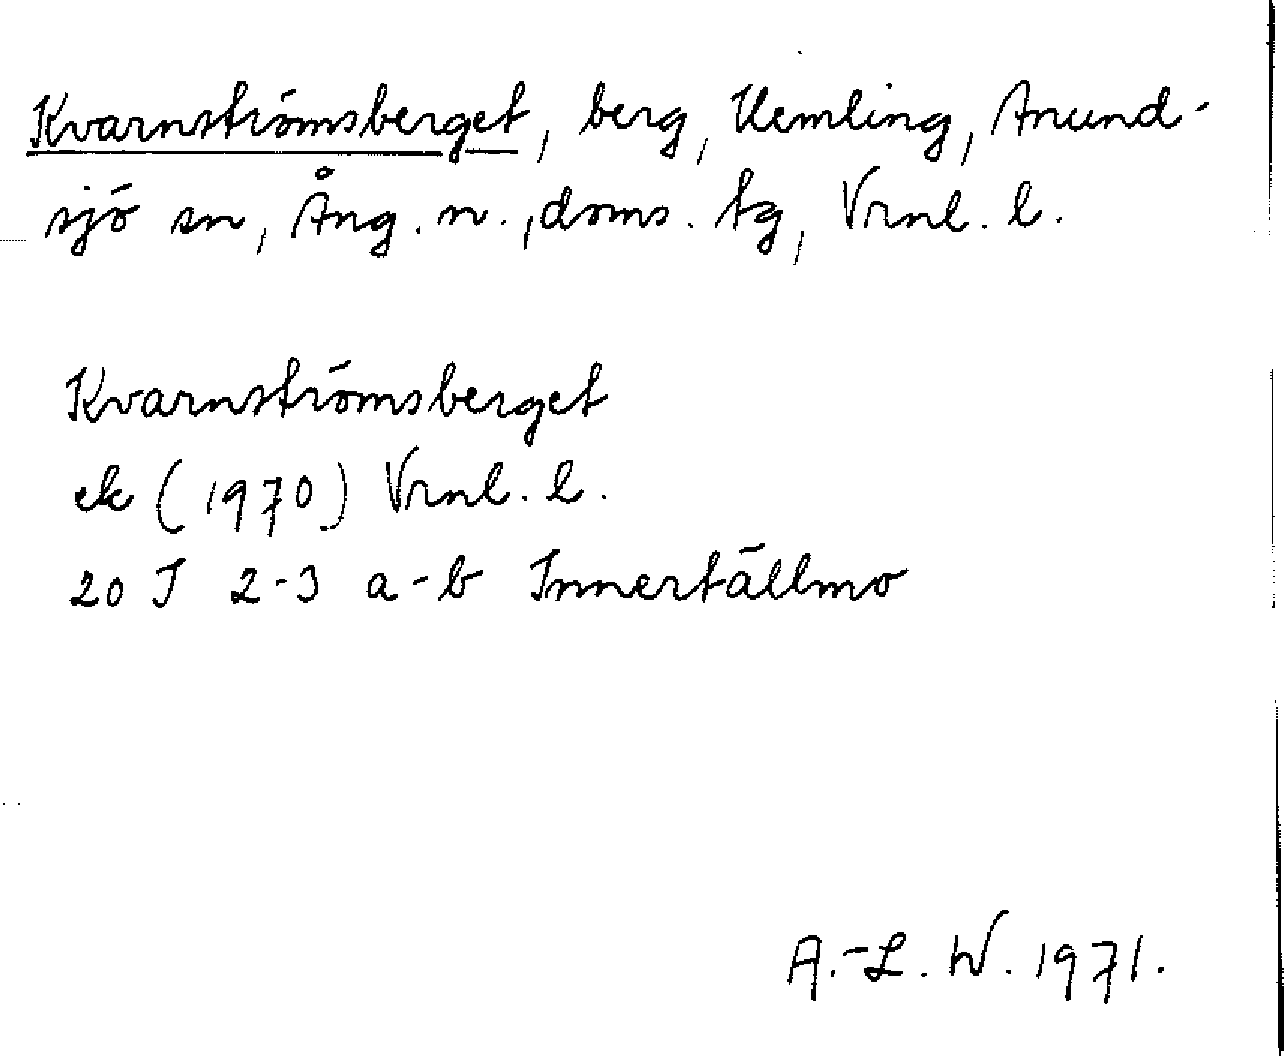 Kvarnströmsberget, berg, Kemling, Anund-
sjö sn, Ång. n., doms. tg, Vrnl. l.
Kvarnströmsberget
ek (1970) Vrnl. l.
20 J 2-3 a-b Innertällmo
A.-L. W. 1971.